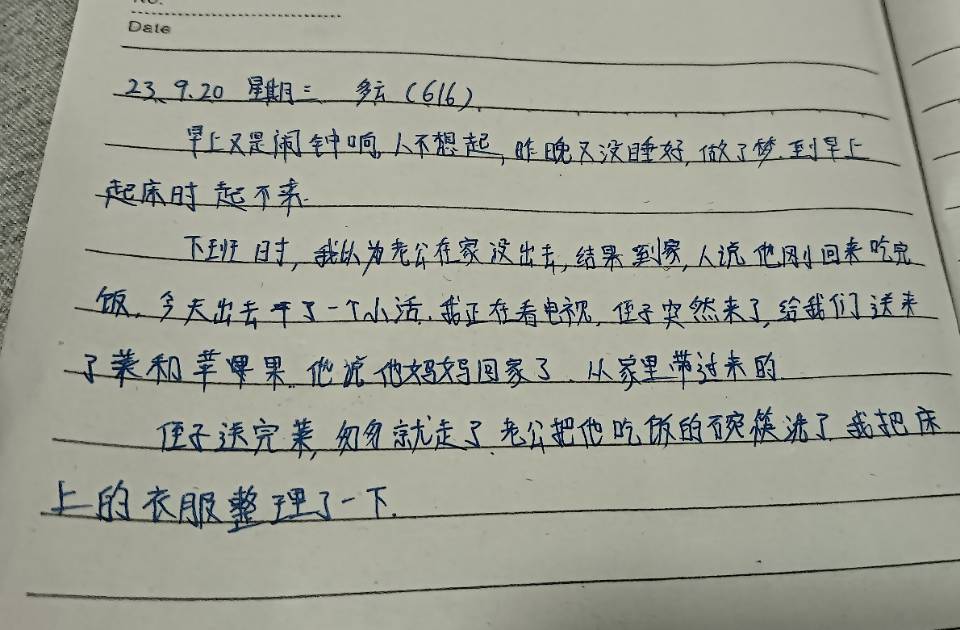 No.
Date
23.9.20 星期三 多云(616).
早上又是闹钟响,人不想起,昨晚又没睡好,做了梦.到早上
起床时起不来.
下班时,我以为老公在家没出去,结果到家,人说他刚回来吃完
饭.今天出去干了一个小活.我正在看电视,侄子突然来了,给我们送来
了菜和苹果.他说他妈妈回家了.从家里带过来的.
侄子送完菜,匆匆就走了.老公把他吃饭的碗筷洗了.我把床
上的衣服整理了一下.